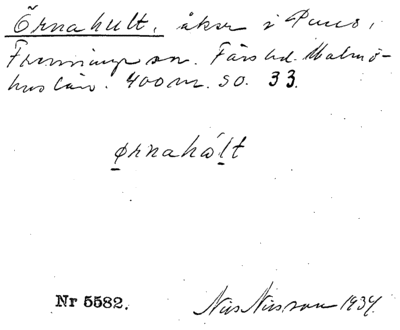 Örnahult, åker i
sn. Färs hd. Malmö-
hus län. 400 m. SO. 33.
ørnahålt
Nr 5582. Nils Nilsson 1934.